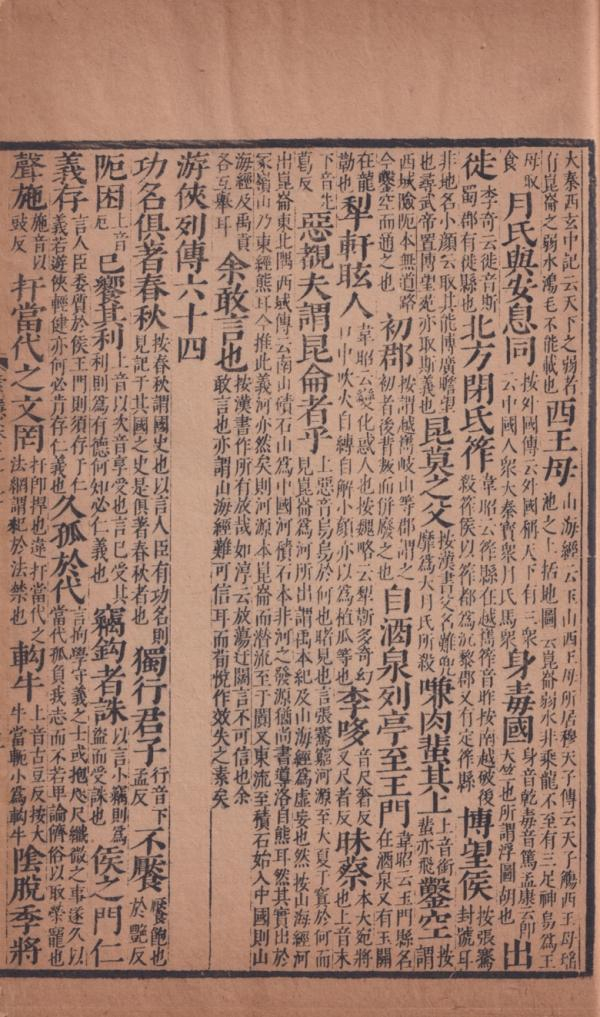 大秦西玄中記云天下之弱者有崑崙之弱水鴻毛不能載也西王母山海經云玉山西王母所居穆天子傳云天子觴西王母瑤池之上括地圖云崑崙弱水非乘龍不至有三足神鳥爲王
母取食月氏與安息同按外國傳云外國稱天下有三衆云中國人衆大秦寳衆月氏馬衆身毒國身音乾毒音篤孟康云卽天竺也所謂浮圖胡也出
徙李奇云徙音斯蜀郡有徙縣也北方閉氐筰韋昭云筰縣在越嶲筰音昨按南越破後殺筰侯以筰都爲沉黎郡又有定筰縣博望侯按張騫封號耳
非地名小顏云取其能博廣瞻望也尋武帝置博望苑亦取斯義也昆莫之父按漢書父名難兜靡爲大月氏所殺嗛肉蜚其上上音銜蜚亦飛鑿空按謂
西域險阨本無道路今鑿空而通之也初郡按謂越嶲岐山等郡謂之初者後背叛而併廢之也自酒泉列亭至玉門韋昭云玉門縣名在酒泉又有玉關
在龍勒也犁軒眩人韋昭云變化惑人也按魏略云犁靳多奇幻口中吹火自縛自解小顏亦以爲植瓜等也李哆音尺奢反又尺者反昧蔡本大宛將也上音末
下音先葛反惡覩夫謂昆侖者乎上惡音烏烏於何也睹見也言張騫窮河源至大夏于窴於何而見崑崙爲河所出謂禹本紀及山海經爲虛妄也然按山海經河
出崑崙東北隅西域傳云南山積石山爲中國河積石本非河之發源猶尚書導洛自熊耳然其實出於冢嶺山乃東經熊耳今推此義河亦然矣則河源本崑崙而潛流至于闐又東流至積石始入中國則山
海經及禹貢各互舉耳余敢言也按漢書作所有放哉如淳云放蕩迂闊言不可信也余敢言也亦謂山海經難可信耳而荀悅作效失之素矣
游俠列傳六十四
功名俱著春秋按春秋謂國史也以言人臣有功名則見記于其國之史是俱著春秋者也獨行君子行音下孟反不饜饜飽也於艷反
阨困上音厄已饗其利上音以次音享受也言已受其利則爲有德何知必仁義也竊鈎者誅以言小竊則爲盜而受誅也侯之門仁
義存言人臣委質於侯王門則須存于仁義若遊俠輕健亦何必肯存仁義也久孤於代言拘學守義之士或抱咫尺纖微之事遂久以當代孤負我志而不若卑論儕俗以取榮寵也
聲施施音以豉反扞當代之文罔扞卽捍也違扞當代之法網謂犯於法禁也軥牛上音古豆反按大牛當軛小爲軥牛陰脫季將